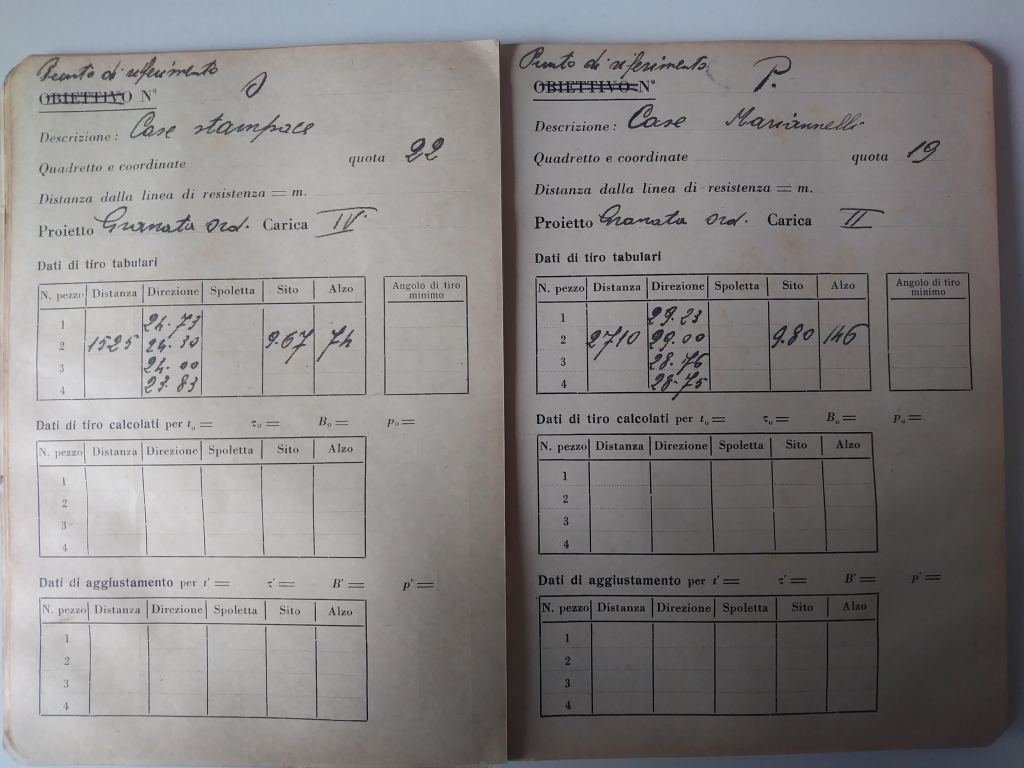 Punto di riferimento
OBIETTIVO N°
Descrizione: Case stampace
Quadretto e coordinate quota 22
Distanza dalla linea di resistenza = m.
Proietto Granata ord. Carica IV
Dati di tiro tabulari
N. pezzo Distanza Direzione Spoletta Sito Alzo Angolo di tiro
minimo
1 24.73
2 1525 24.30 9.67 74
3 24.00
4 23.83
Dati di tiro calcolati per t₀ = τ₀ = B₀ = p₀ =
N. pezzo Distanza Direzione Spoletta Sito Alzo
1
2
3
4
Dati di aggiustamento per t' = τ' = B' = p' =
N. pezzo Distanza Direzione Spoletta Sito Alzo
1
2
3
4
Punto di riferimento
OBIETTIVO N° P.
Descrizione: Case Mariannelli
Quadretto e coordinate quota 19
Distanza dalla linea di resistenza = m.
Proietto Granata ord. Carica II
Dati di tiro tabulari
N. pezzo Distanza Direzione Spoletta Sito Alzo Angolo di tiro
minimo
1 29.23
2 2710 29.00 9.80 146
3 28.76
4 28.75
Dati di tiro calcolati per t₀ = τ₀ = B₀ = p₀ =
N. pezzo Distanza Direzione Spoletta Sito Alzo
1
2
3
4
Dati di aggiustamento per t' = τ' = B' = p' =
N. pezzo Distanza Direzione Spoletta Sito Alzo
1
2
3
4